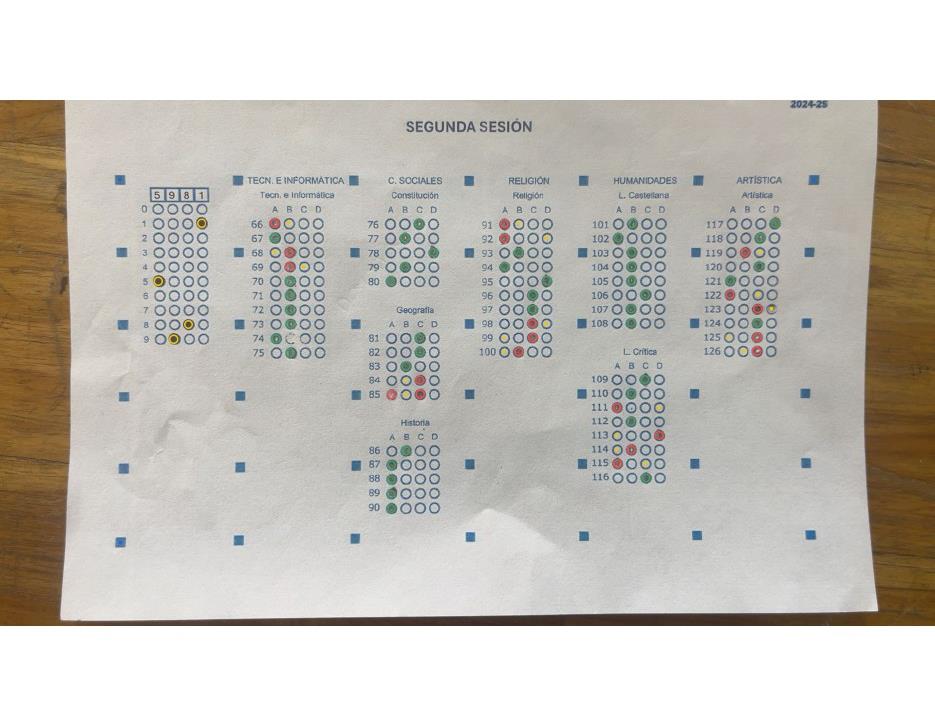 2024-25
SEGUNDA SESIÓN
TECN. E INFORMÁTICA
Tecn. e Informática
A B C D
66
67
68
69
70
71
72
73
74
75
C. SOCIALES
Constitución
A B C D
76
77
78
79
80
Geografía
A B C D
81
82
83
84
85
Historia
A B C D
86
87
88
89
90
RELIGIÓN
Religión
A B C D
91
92
93
94
95
96
97
98
99
100
HUMANIDADES
L. Castellana
A B C D
101
102
103
104
105
106
107
108
L. Crítica
A B C D
109
110
111
112
113
114
115
116
ARTÍSTICA
Artística
A B C D
117
118
119
120
121
122
123
124
125
126
5 9 8 1
0
1
2
3
4
5
6
7
8
9